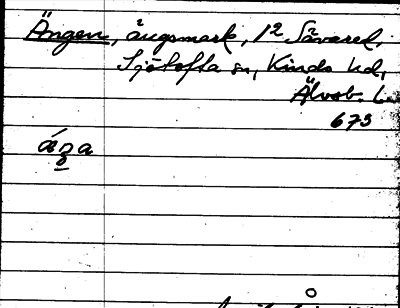 Ängen, ängsmark, 1² Sävared,
Sjötofta sn, Kinds hd,
Älvsb. l.
673
áŋa